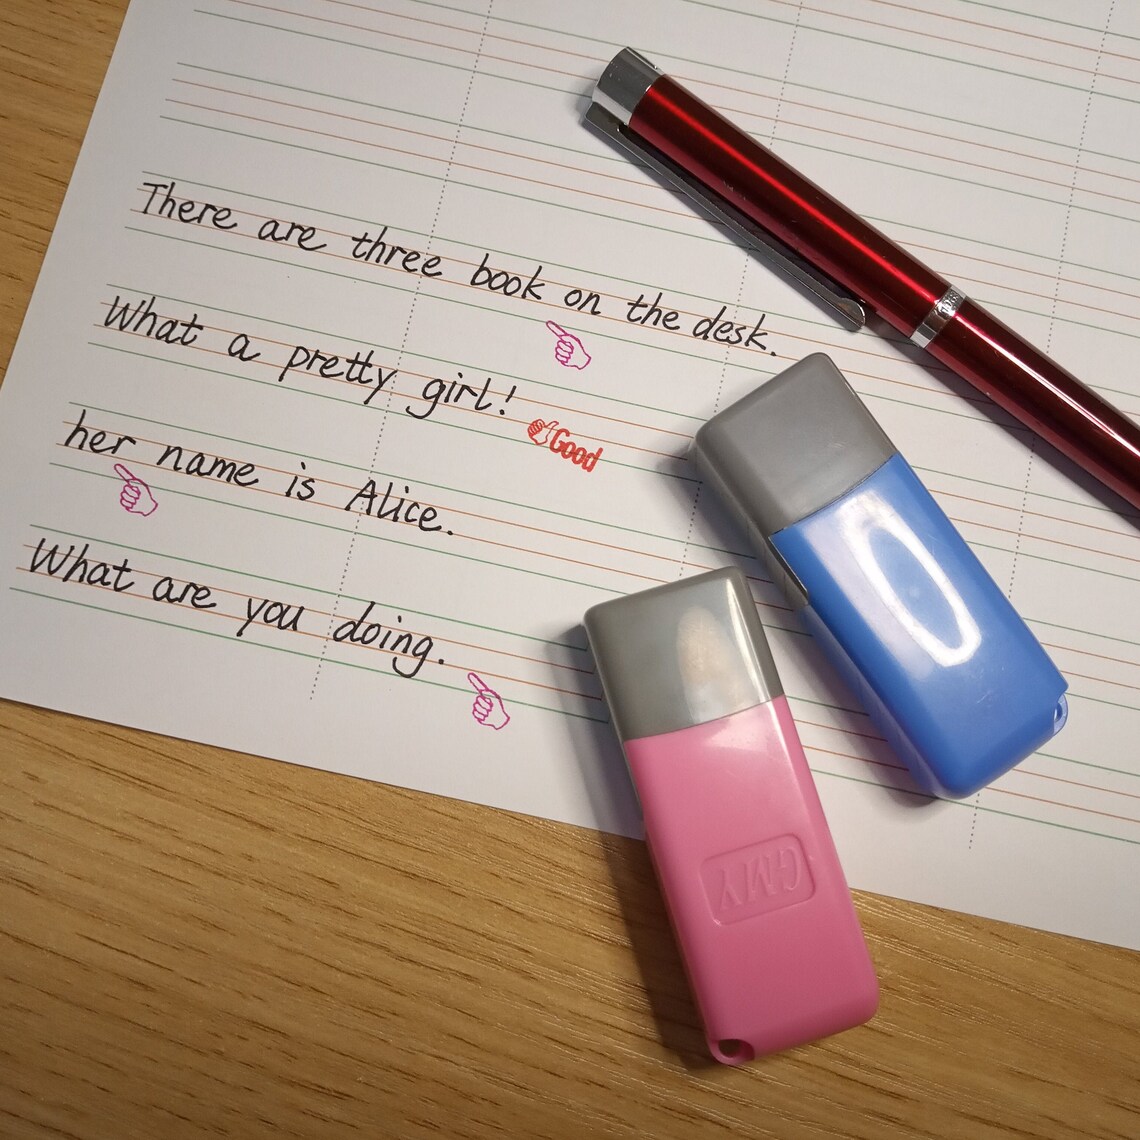 There are three book on the desk.
What a pretty girl!
Good
her name is Alice.
What are you doing.
GMY